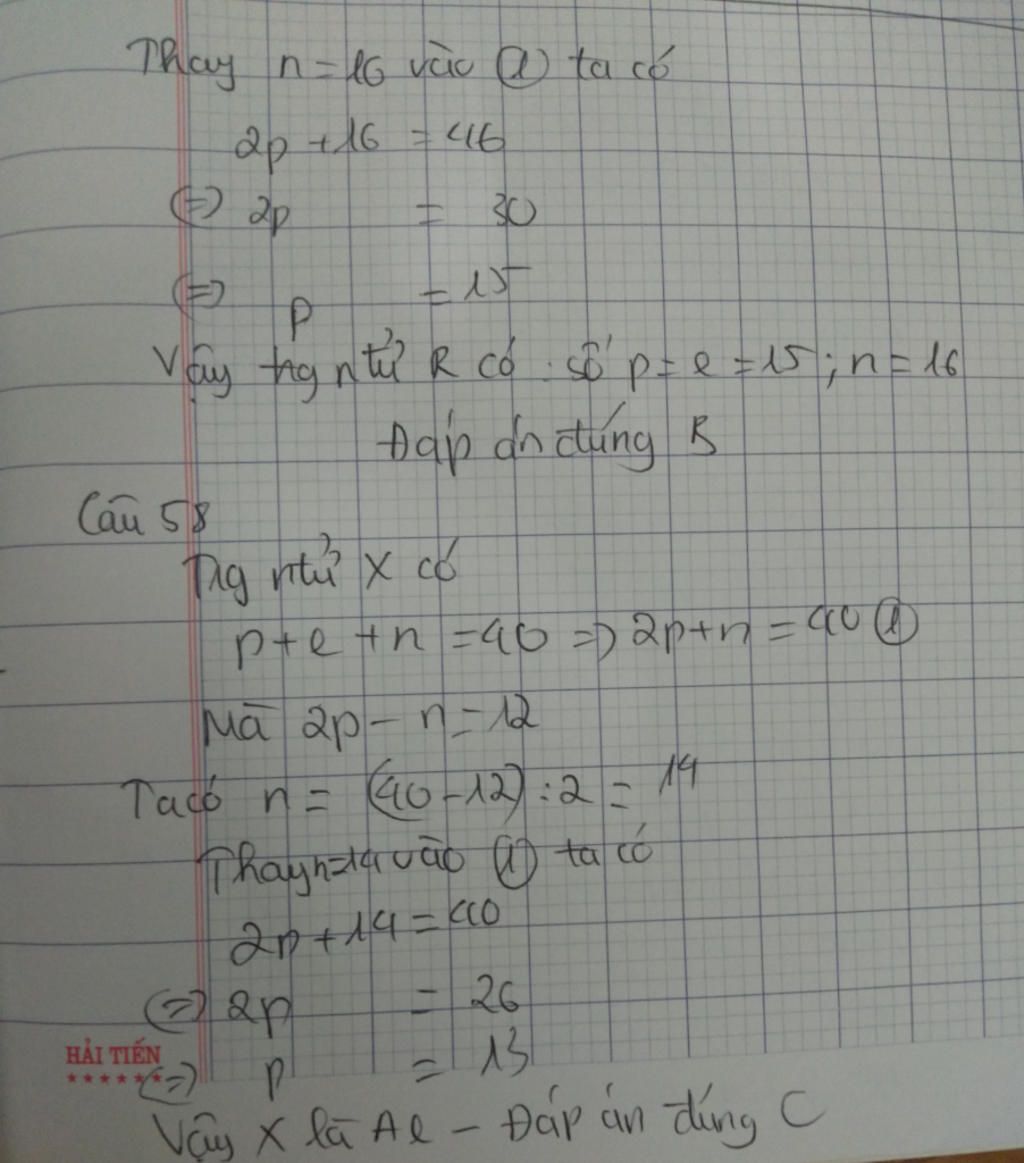 Thay n = 16 vào ① ta có
2p + 16 = 46
⇔ 2p = 30
⇔ p = 15
Vậy ng ntử R có số p = e = 15 ; n = 16
Đáp án đúng B
Câu 58
Ng ntử X có
p + e + n = 40 => 2p + n = 40 ①
Mà 2p - n = 12
Ta có n = (40 - 12) : 2 = 14
Thay n = 14 vào ① ta có
2p + 14 = 40
⇔ 2p = 26
HẢI TIẾN
⇔ p = 13
Vậy X là Al - Đáp án đúng C